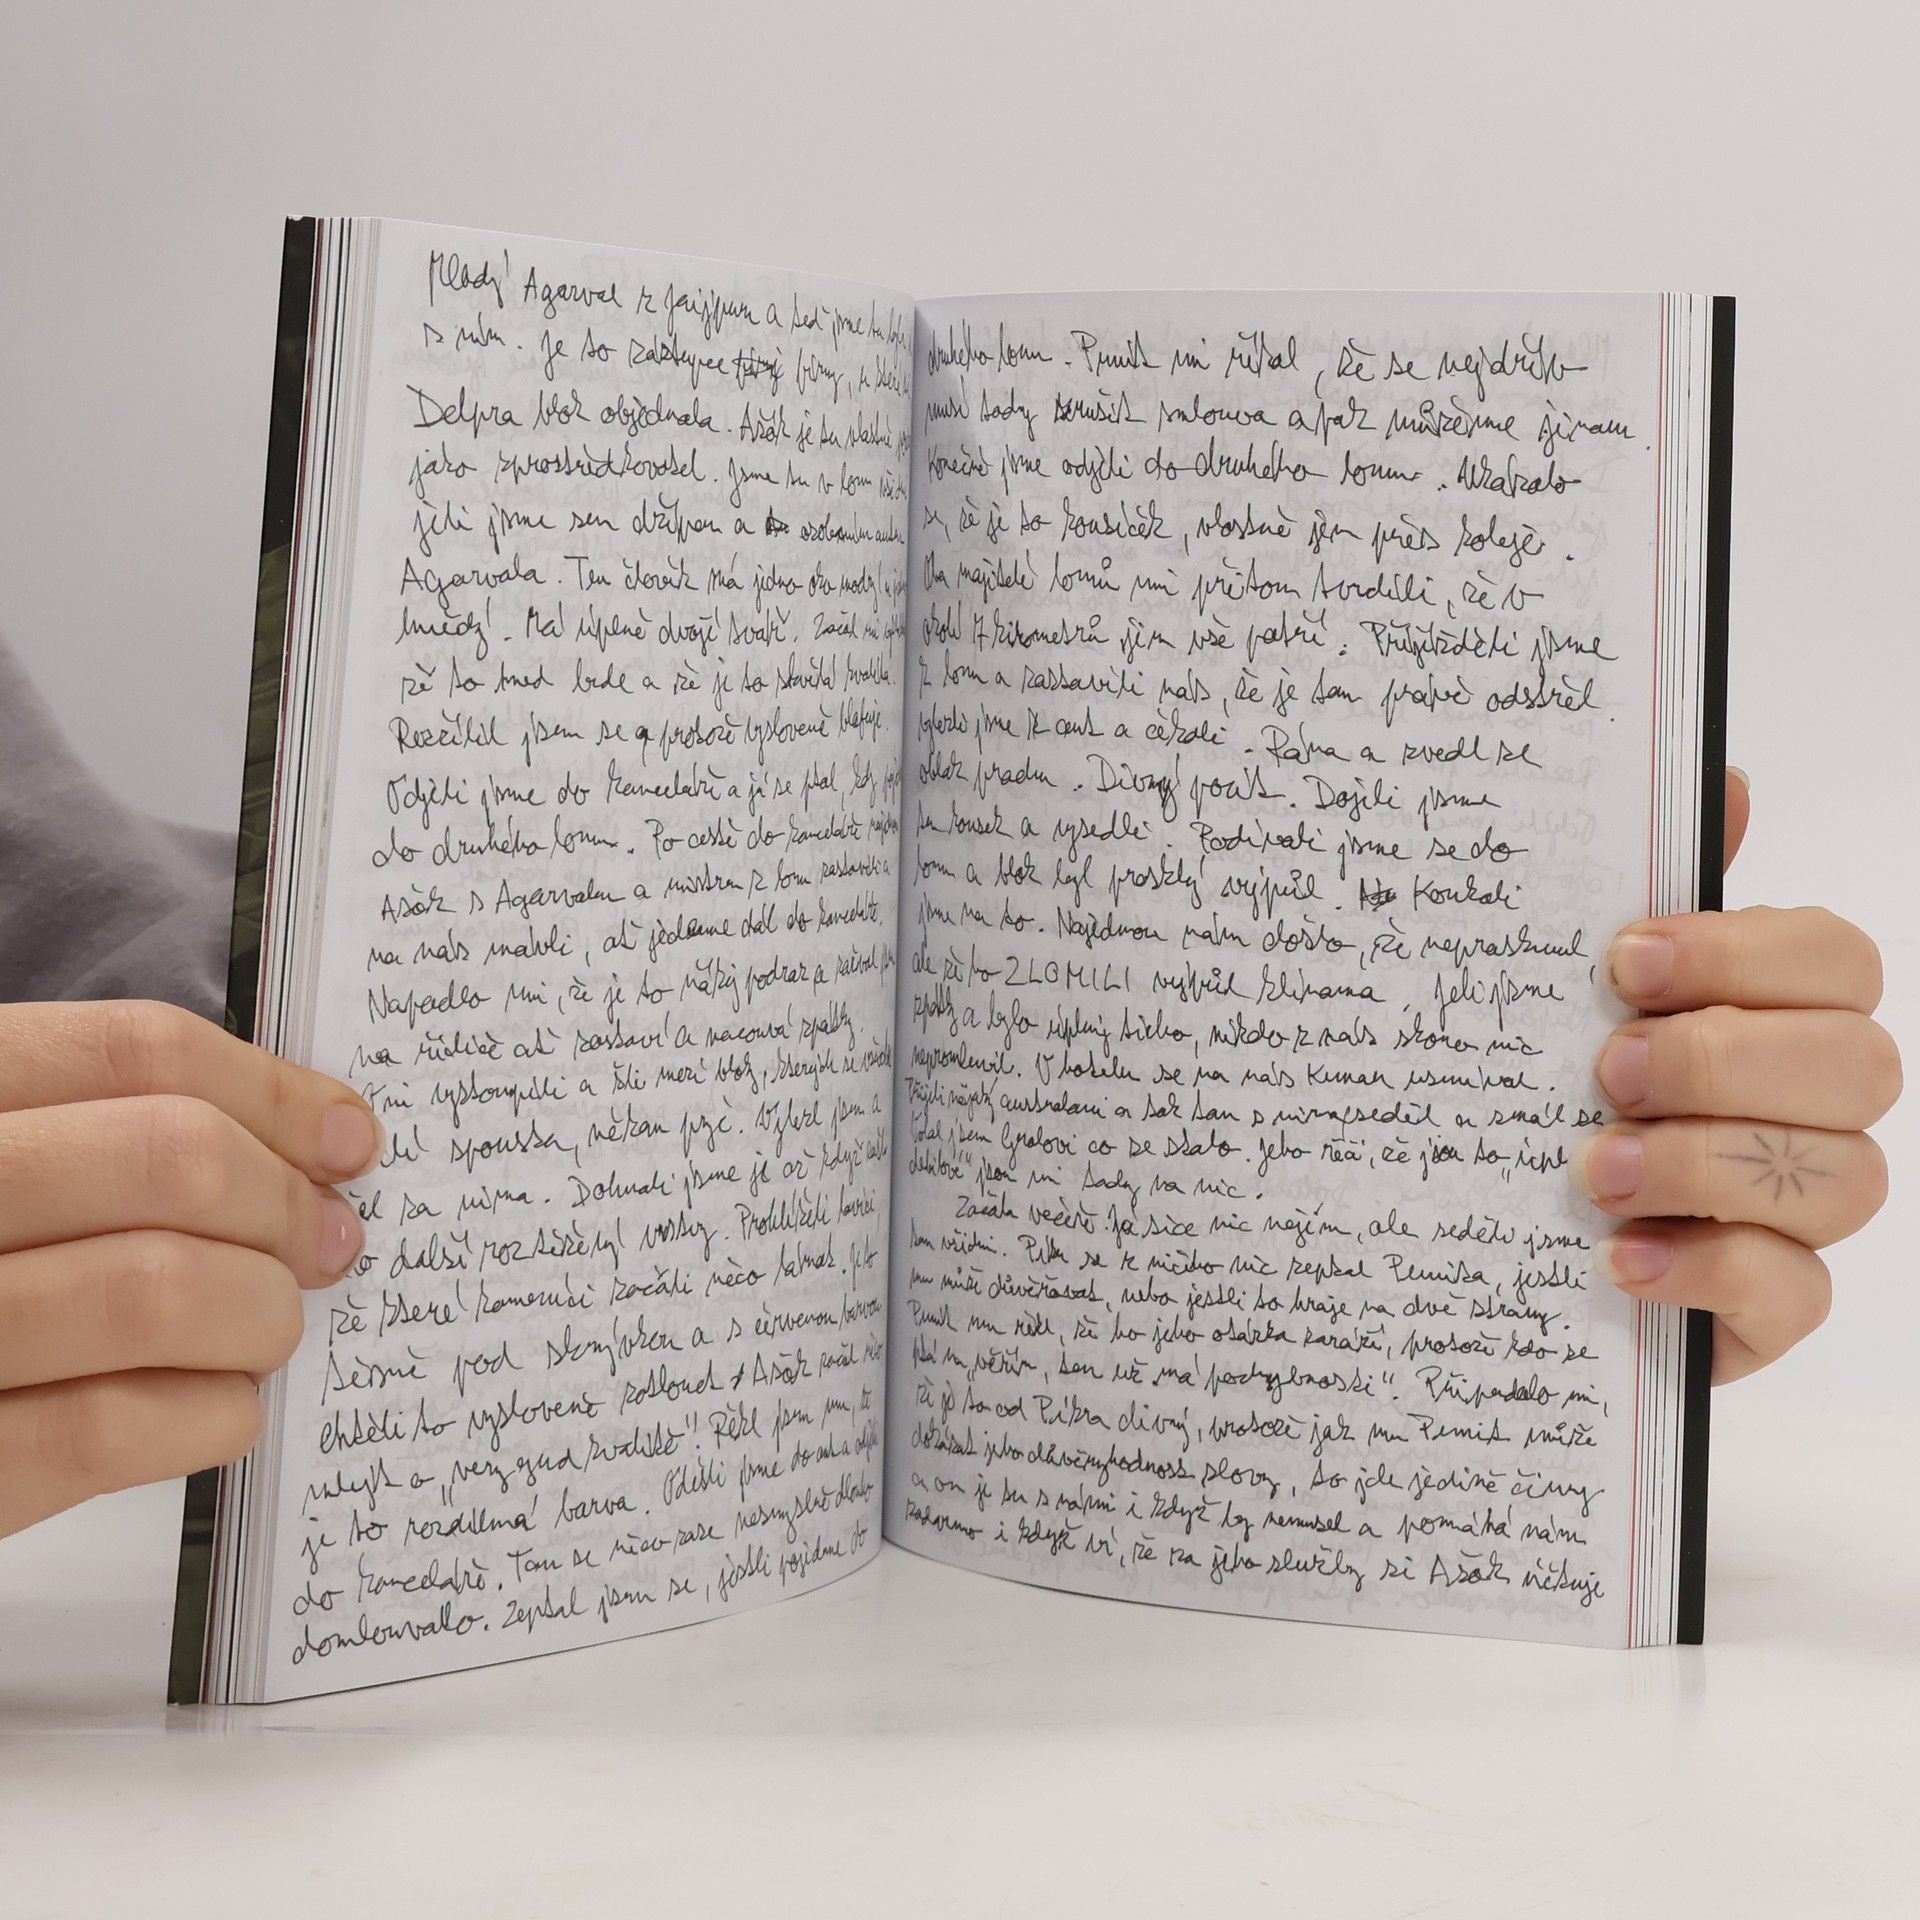 Mladý Agarval z Jaipuru a teď jsme tu byli
s ním. Je to zástupce firmy, u které
Delpra blok objednala. Ašók je tu vlastně
jako zprostředkovatel. Jsme tu v lomu
jeli jsme sem džípem a osobním autem
Agarvala. Ten člověk má jedno oko modrý a
hnědý. Má úplně dvojí tvář. Začal mi
že to hned bude a že je to skvělá kvalita.
Rozčílil jsem se protože vysloveně blafuje.
Odjeli jsme do kanceláře a já se ptal, kdy
do druhého lomu. Po cestě do kanceláře
Ašók s Agarvalem a mistrem z lomu zastavili a
na nás mávli, ať jedeme dál do kanceláře.
Napadlo mi, že je to nějký podraz a začal jsem
na řidiče ať zastaví a nacouvá zpátky.
vystoupili a šli mezi bloky, kterých se
spousta, někam pryč. Vylezl jsem a
za nima. Dohnali jsme je až když
další roztěžený vrstvy. Prohlíželi
ze které kameníci začali něco lámat. Je to
těsně pod skrývkou a s červenou barvou
chtěli to vysloveně zatlouct. Ašók začal něco
mlejt o „very gud kvalitě“. Řekl jsem mu, že
je to rozdílná barva. Odešli jsme do aut a odjeli
do kanceláře. Tam se něco zase nesmyslně dlouho
domlouvalo. Zeptal jsem se, jestli pojedeme do
druhého lomu. Punit mi říkal, že se nejdřív
musí tady zrušit smlouva a pak můžeme jinam.
Konečně jsme odjeli do druhého lomu. Ukázalo
se, že je to kousíček, vlastně jen přes koleje.
Oba majitelé lomů mi přitom tvrdili, že v
okolí 7 kilometrů jim vše patří. Přijížděli jsme
k lomu a zastavili nás, že je tam právě odstřel.
Vylezli jsme z aut a čekali. Rána a zvedl se
oblak prachu. Divný pocit. Dojeli jsme
ten kousek a vysedli. Podívali jsme se do
lomu a blok byl prasklý vejpůl. Koukali
jsme na to. Najednou nám došlo, že neprasknul,
ale že ho ZLOMILI vejpůl klínama. Jeli jsme
zpátky a bylo úplný ticho, nikdo z nás skoro nic
nepromluvil. V hotelu se na nás Kumar usmíval.
Přijeli nějaký australani a tak tam s nima seděl a smál se
Volal jsem Gralovi co se stalo. Jeho řeči, že jsou to „úpl
debilové“ jsou mi tady na nic.
Začala večeře. Já sice nic nejím, ale seděli jsme
tam všichni. Pikr se z ničeho nic zeptal Punita, jestli
mu může důvěřovat, nebo jestli to hraje na dvě strany.
Punit mu řekl, že ho jeho otázka zaráží, protože kdo se
ptá na „věřím, ten už má pochybnosti“. Připadalo mi,
že je to od Pikra divný, protože jak mu Punit může
dokázat jeho důvěryhodnost slovy, to jde jedině činy
a on je tu s námi i když by nemusel a pomáhá nám
zadarmo i když ví, že za jeho služby si Ašók účtuje